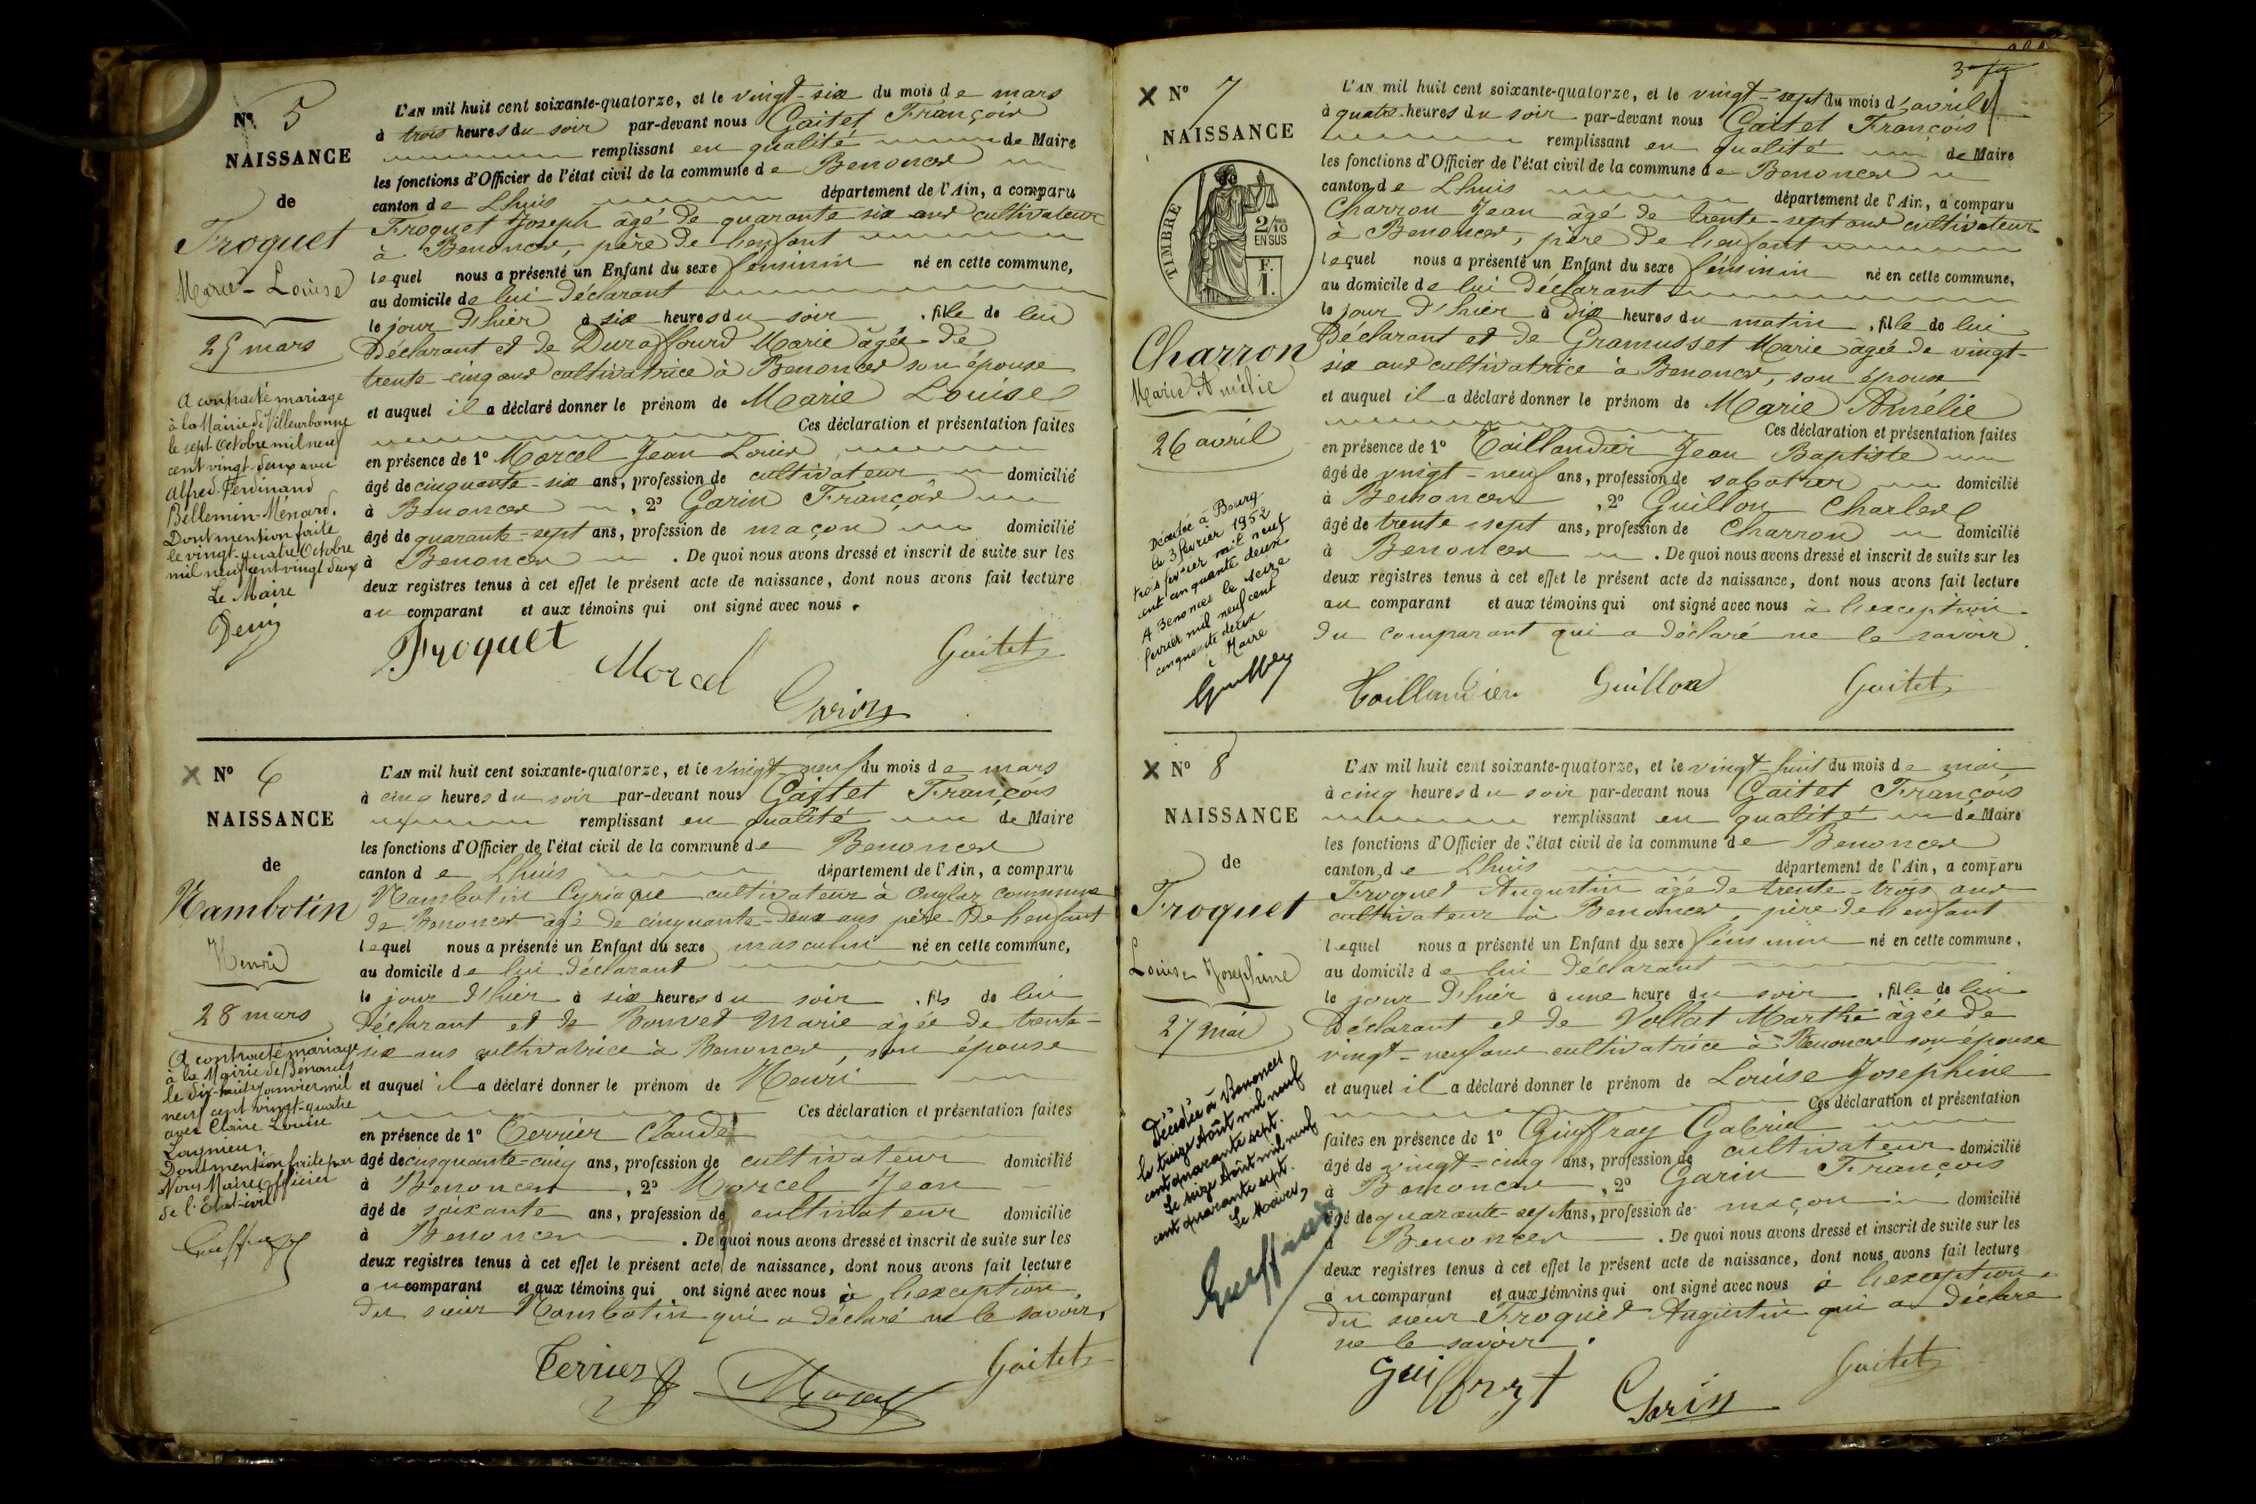 No 5
NAISSANCE
de
Froquet
Marie-Louise
25 mars
A contracté mariage
à la Mairie de Villeurbanne
le sept Octobre mil neuf
cent vingt-deux avec
Alfred-Ferdinand
Bellemin-Ménard.
Dont mention faite
le vingt-quatre Octobre
mil neuf cent vingt deux
Le Maire
L'AN mil huit cent soixante-quatorze, et le vingt-six du mois de mars
à trois heures du soir par-devant nous Gaitet François
remplissant en qualité de Maire
les fonctions d'Officier de l'état civil de la commune de Benonces
canton de Lhuis département de l'Ain, a comparu
Froquet Joseph âgé de quarante six ans cultivateur
à Benonces, père de l'enfant
lequel nous a présenté un Enfant du sexe féminin né en cette commune,
au domicile de lui déclarant
le jour d'hier à six heures du soir, fille de lui
déclarant et de Duraffourd Marie âgée de
trente-cinq ans cultivatrice à Benonces son épouse
et auquel il a déclaré donner le prénom de Marie Louise
Ces déclaration et présentation faites
en présence de 1º Morcel Jean Louis
âgé de cinquante-six ans, profession de cultivateur domicilié
à Benonces, 2º Garin François
âgé de quarante-sept ans, profession de maçon domicilié
à Benonces. De quoi nous avons dressé et inscrit de suite sur les
deux registres tenus à cet effet le présent acte de naissance, dont nous avons fait lecture
au comparant et aux témoins qui ont signé avec nous.
Froquet Morcel Garin Gaitet
No 6
NAISSANCE
de
Nambotin
Henri
28 mars
A contracté mariage
à la Mairie de Bénonces
le dix-huit janvier mil
neuf cent vingt-quatre
avec Claire Louise
Dont mention faite par
Nous Maire Officier
de l'Etat-civil
L'AN mil huit cent soixante-quatorze, et le vingt-neuf du mois de mars
à cinq heures du soir par-devant nous Gaitet François
remplissant en qualité de Maire
les fonctions d'Officier de l'état civil de la commune de Benonces
canton de Lhuis département de l'Ain, a comparu
Nambotin Cyriaque cultivateur à Onglas commune
de Benonces âgé de cinquante-deux ans père de l'enfant
lequel nous a présenté un Enfant du sexe masculin né en cette commune,
au domicile de lui déclarant
le jour d'hier à six heures du soir, fils de lui
déclarant et de Bonvet Marie âgée de trente-
six ans cultivatrice à Benonces, son épouse
et auquel il a déclaré donner le prénom de Henri
Ces déclaration et présentation faites
en présence de 1º Terrier Claude
âgé de cinquante-cinq ans, profession de cultivateur domicilié
à Benonces, 2º Morcel Jean
âgé de soixante ans, profession de cultivateur domicilié
à Benonces. De quoi nous avons dressé et inscrit de suite sur les
deux registres tenus à cet effet le présent acte de naissance, dont nous avons fait lecture
au comparant et aux témoins qui ont signé avec nous à l'exception
du sieur Nambotin qui a déclaré ne le savoir.
Terrier Morcel Gaitet
X No 7
NAISSANCE
TIMBRE
2/10
EN SUS
F.
1.
Charron
Marie Amélie
26 avril
Décédée à Bourg
le 3 février 1952
trois février mil neuf
cent cinquante deux
A Benonces le seize
février mil neuf cent
cinquante deux
Maire
L'AN mil huit cent soixante-quatorze, et le vingt-sept du mois d'avril
à quatre heures du soir par-devant nous Gaitet François
remplissant en qualité de Maire
les fonctions d'Officier de l'état civil de la commune de Benonces
canton de Lhuis département de l'Ain, a comparu
Charron Jean âgé de trente-sept ans cultivateur
à Benonces, père de l'enfant
lequel nous a présenté un Enfant du sexe féminin né en cette commune,
au domicile de lui déclarant
le jour d'hier à dix heures du matin, fille de lui
déclarant et de Gramusset Marie âgée de vingt-
six ans cultivatrice à Benonces, son épouse
et auquel il a déclaré donner le prénom de Marie Amélie
Ces déclaration et présentation faites
en présence de 1º Taillandier Jean Baptiste
âgé de vingt-neuf ans, profession de sabotier domicilié
à Benonces, 2º Guillon Charles
âgé de trente-sept ans, profession de Charron domicilié
à Benonces. De quoi nous avons dressé et inscrit de suite sur les
deux registres tenus à cet effet le présent acte de naissance, dont nous avons fait lecture
au comparant et aux témoins qui ont signé avec nous à l'exception
du comparant qui a déclaré ne le savoir.
Taillandier Guillon Gaitet
X No 8
NAISSANCE
de
Froquet
Louise Joséphine
27 mai
Décédée à Benonces
le treize Août mil neuf
cent quarante sept.
Le seize Août mil neuf
cent quarante sept.
Le Maire,
L'AN mil huit cent soixante-quatorze, et le vingt-huit du mois de mai
à cinq heures du soir par-devant nous Gaitet François
remplissant en qualité de Maire
les fonctions d'Officier de l'état civil de la commune de Benonces
canton de Lhuis département de l'Ain, a comparu
Froquet Augustin âgé de trente-trois ans
cultivateur à Benonces, père de l'enfant
lequel nous a présenté un Enfant du sexe féminin né en cette commune,
au domicile de lui déclarant
le jour d'hier à une heure du soir, fille de lui
déclarant et de Vollat Marthe âgée de
vingt-neuf ans cultivatrice à Benonces son épouse
et auquel il a déclaré donner le prénom de Louise Joséphine
Ces déclaration et présentation
faites en présence de 1º Guiffray Gabriel
âgé de vingt-cinq ans, profession de cultivateur domicilié
à Benonces, 2º Garin François
âgé de quarante-sept ans, profession de maçon domicilié
à Benonces. De quoi nous avons dressé et inscrit de suite sur les
deux registres tenus à cet effet le présent acte de naissance, dont nous avons fait lecture
au comparant et aux témoins qui ont signé avec nous à l'exception
du sieur Froquet Augustin qui a déclaré
ne le savoir.
Garin Gaitet